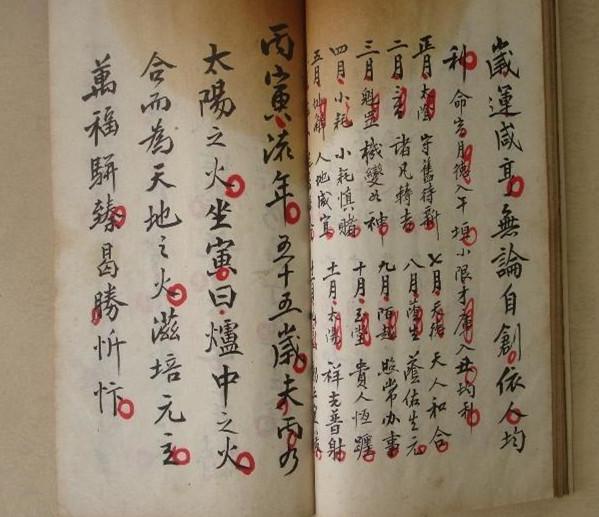 歲運咸亨無論自創依人均
利命宮月德入午垣小限才庫入丑均利
正月太陰守舊待新
七月天德天人和合
二月諸凡轉吉
八月蔭佑生元
三月魁罡機變如神
九月陌越照常办事
四月小耗小耗慎賭
十月玉堂貴人恆躔
五月人地咸宜
十一月太陽祥光普射
丙寅流年五十五歲未雨乃
太陽之火坐寅曰爐中之火
合而為天地之火滋培元立
萬福駢臻曷勝忻忭